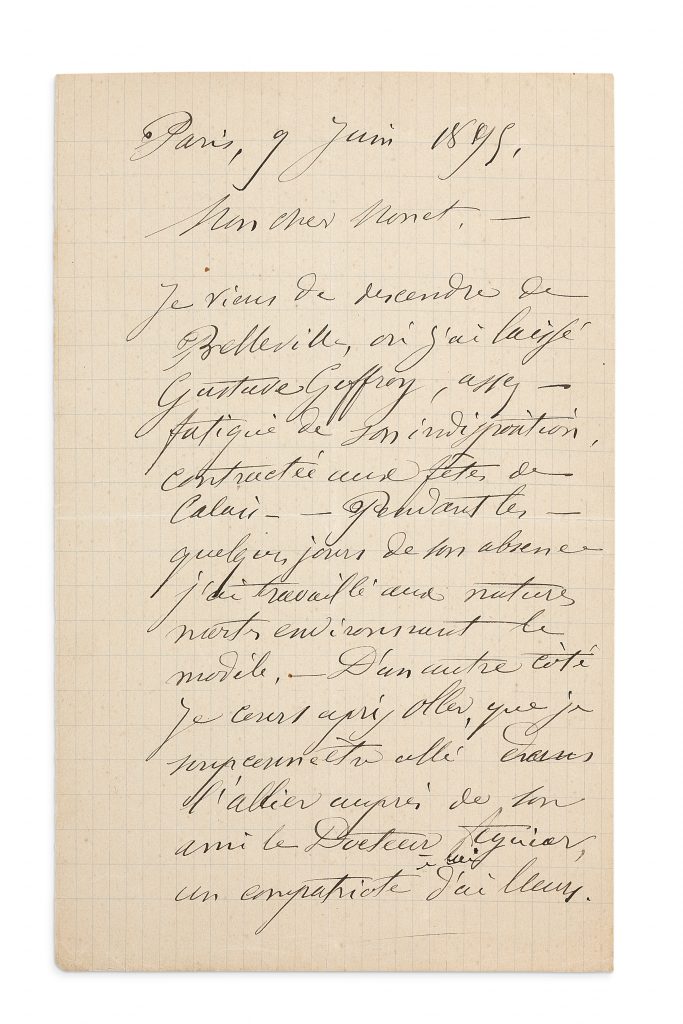 Paris, 9 Juin 1895,
Mon cher Monet. —
Je viens de descendre de
Belleville, où j'ai laissé
Gustave Geffroy, assez —
fatigué de son indisposition,
contractée aux fêtes de
Calais — — Pendant les —
quelques jours de son absence
j'ai travaillé aux natures
mortes environnant le
modèle. — D'un autre côté
Je cours après Oller, que je
soupçonne être allé dans
l'allier auprès de son
ami le Docteur Aguiar,
à lui
un compatriote d'ailleurs.